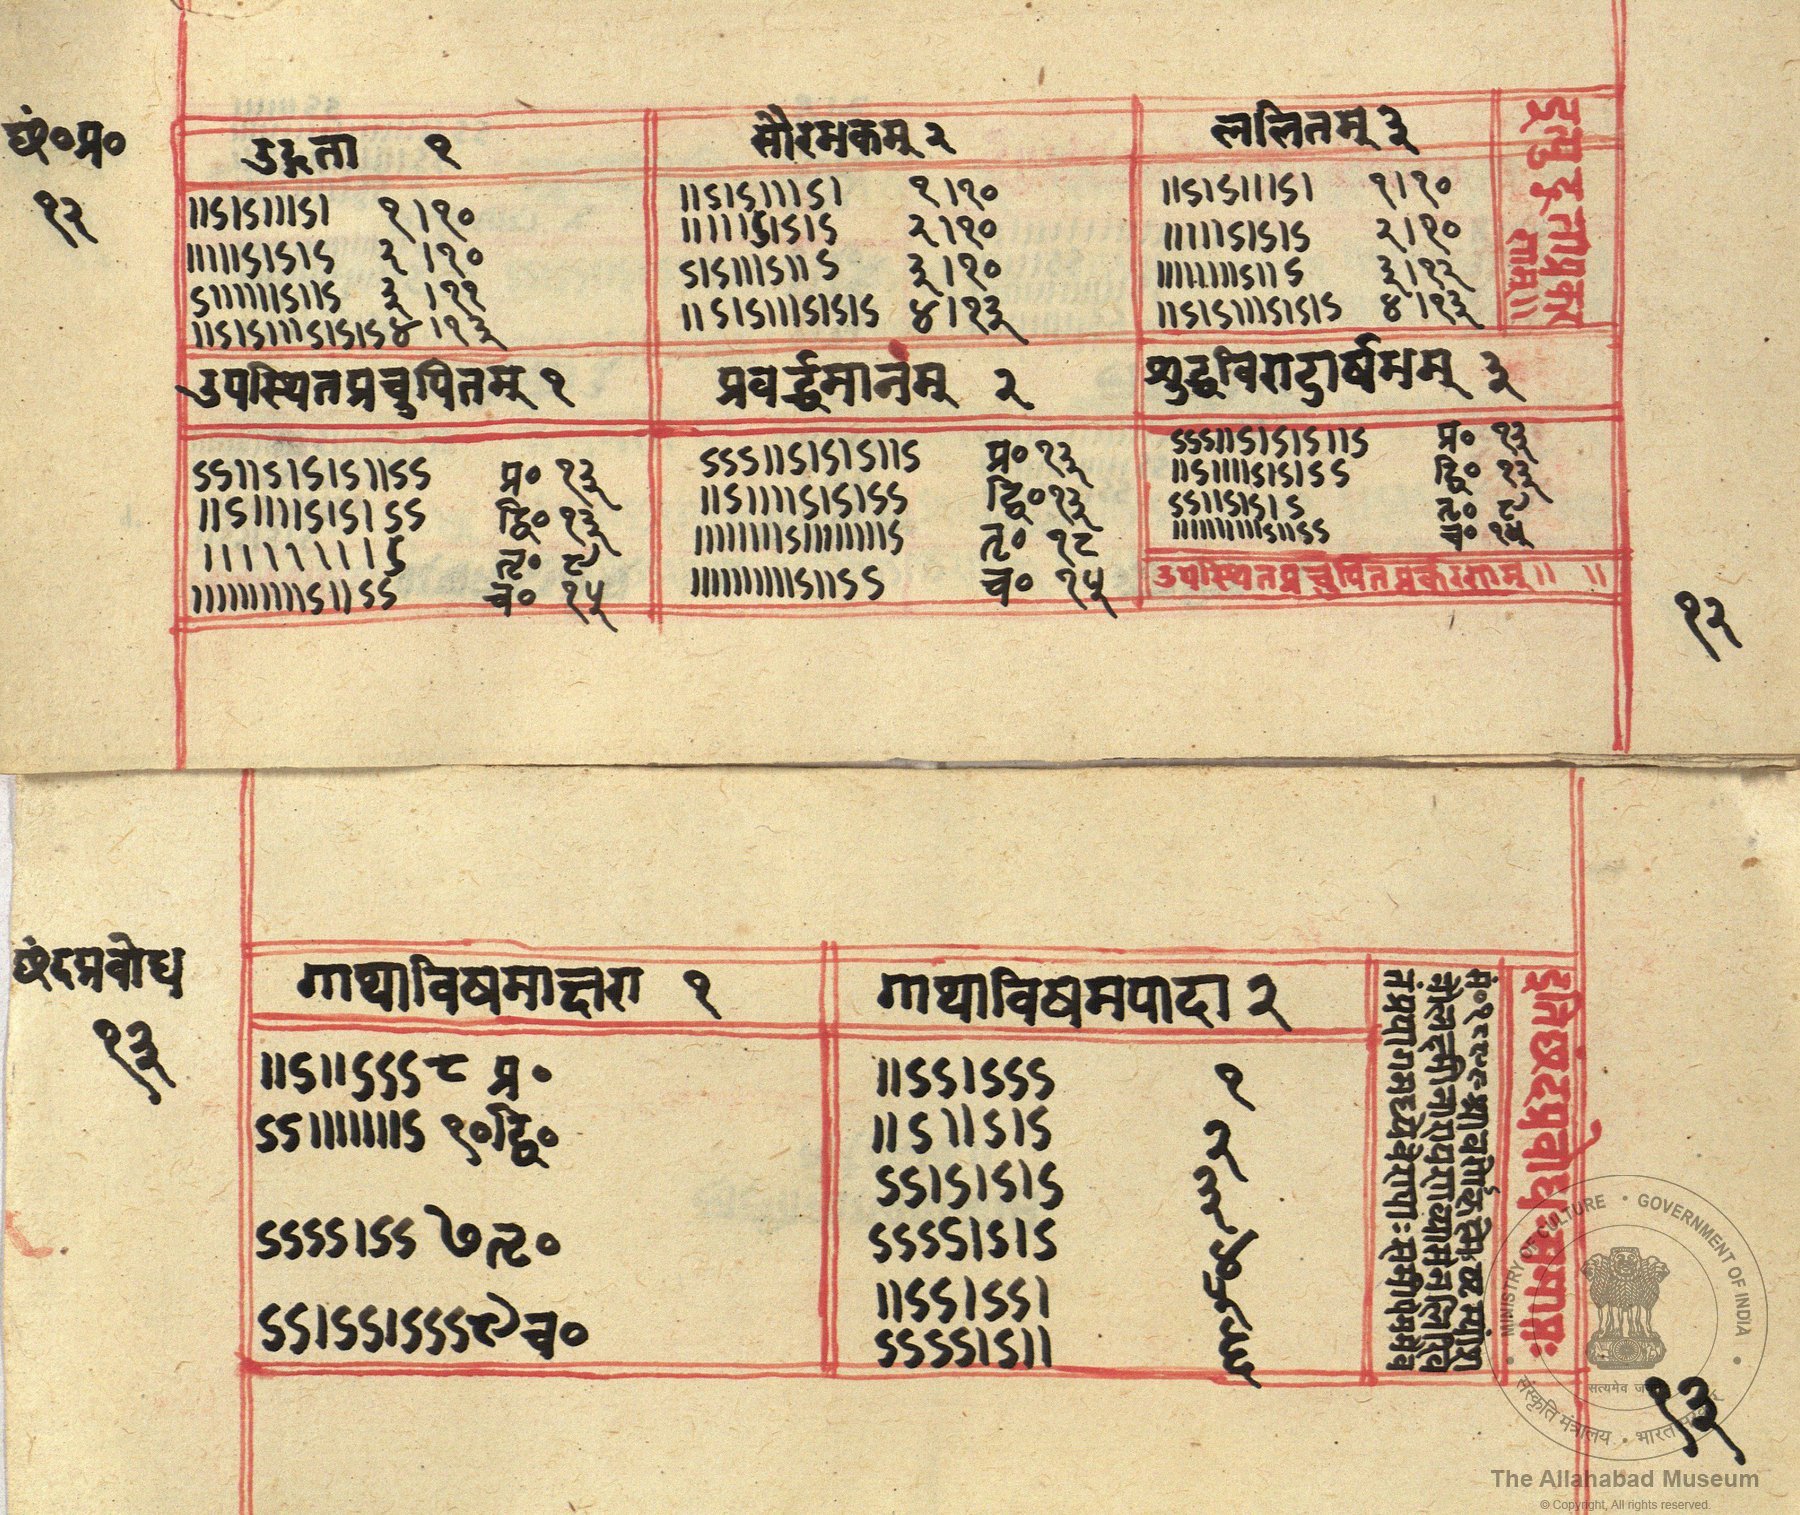 छं०प्र०
१२
उद्गता १
।।ऽ।ऽ।।।ऽ। १।१०
।।।।।ऽ।ऽ।ऽ २।१०
ऽ।।।।।।ऽ।।ऽ ३।११
।।ऽ।ऽ।।।ऽ।ऽ।ऽ ४।१३
सौरभकम् २
।।ऽ।ऽ।।।ऽ। १।१०
।।।।।ऽ।ऽ।ऽ २।१०
ऽ।ऽ।।।ऽ।।ऽ ३।१०
।।ऽ।ऽ।।।ऽ।ऽ।ऽ ४।१३
ललितम् ३
।।ऽ।ऽ।।।ऽ। १।१०
।।।।।ऽ।ऽ।ऽ २।१०
।।।।।।।।ऽ।।ऽ ३।१२
।।ऽ।ऽ।।।ऽ।ऽ।ऽ ४।१३
उपस्थितप्रचुपितम् १
ऽऽ।।ऽ।ऽ।ऽ।।ऽऽ प्र० १३
।।ऽ।।।।ऽ।ऽ।ऽऽ द्वि० १३
।।।।।।।।।ऽ तृ० ९
।।।।।।।।।ऽ।।ऽऽ च० १५
प्रवर्द्धमानंम् २
ऽऽऽ।।ऽ।ऽ।ऽ।।ऽ प्र० १३
।।ऽ।।।।ऽ।ऽ।ऽऽ द्वि० १३
।।।।।।।।ऽ।।।।।।।।ऽ तृ० १८
।।।।।।।।।।ऽ।।ऽऽ च० १५
शुद्धविराटार्षभम् ३
ऽऽऽ।।ऽ।ऽ।ऽ।।ऽ प्र० १३
।।ऽ।।।।ऽ।ऽ।ऽऽ द्वि० १३
ऽऽ।।ऽ।ऽ।ऽ तृ० ९
।।।।।।।।।।ऽ।।ऽऽ च० १५
उपस्थितप्रचुपितप्रकरणम्।। ।।
१२
छंदप्रबोध
१३
गाथाविषमाक्षरा १
।।ऽ।।ऽऽऽ ८ प्र०
ऽऽ।।।।।।।ऽ १०द्वि०
ऽऽऽऽ।ऽऽ ७तृ०
ऽऽ।ऽऽ।ऽऽऽ९च०
गाथाविषमपादा २
।।ऽऽ।ऽऽऽ १
।।ऽ।।ऽ।ऽ २
ऽऽ।ऽ।ऽ।ऽ ३
ऽऽऽऽ।ऽ।ऽ ४
।।ऽऽ।ऽऽ। ५
ऽऽऽऽ।ऽ।। ६
इतिछंदप्रबोधःसमाप्तः
१३
MINISTRY OF CULTURE • GOVERNMENT OF INDIA
संस्कृति मंत्रालय • भारत सरकार
The Allahabad Museum
© Copyright, All rights reserved.